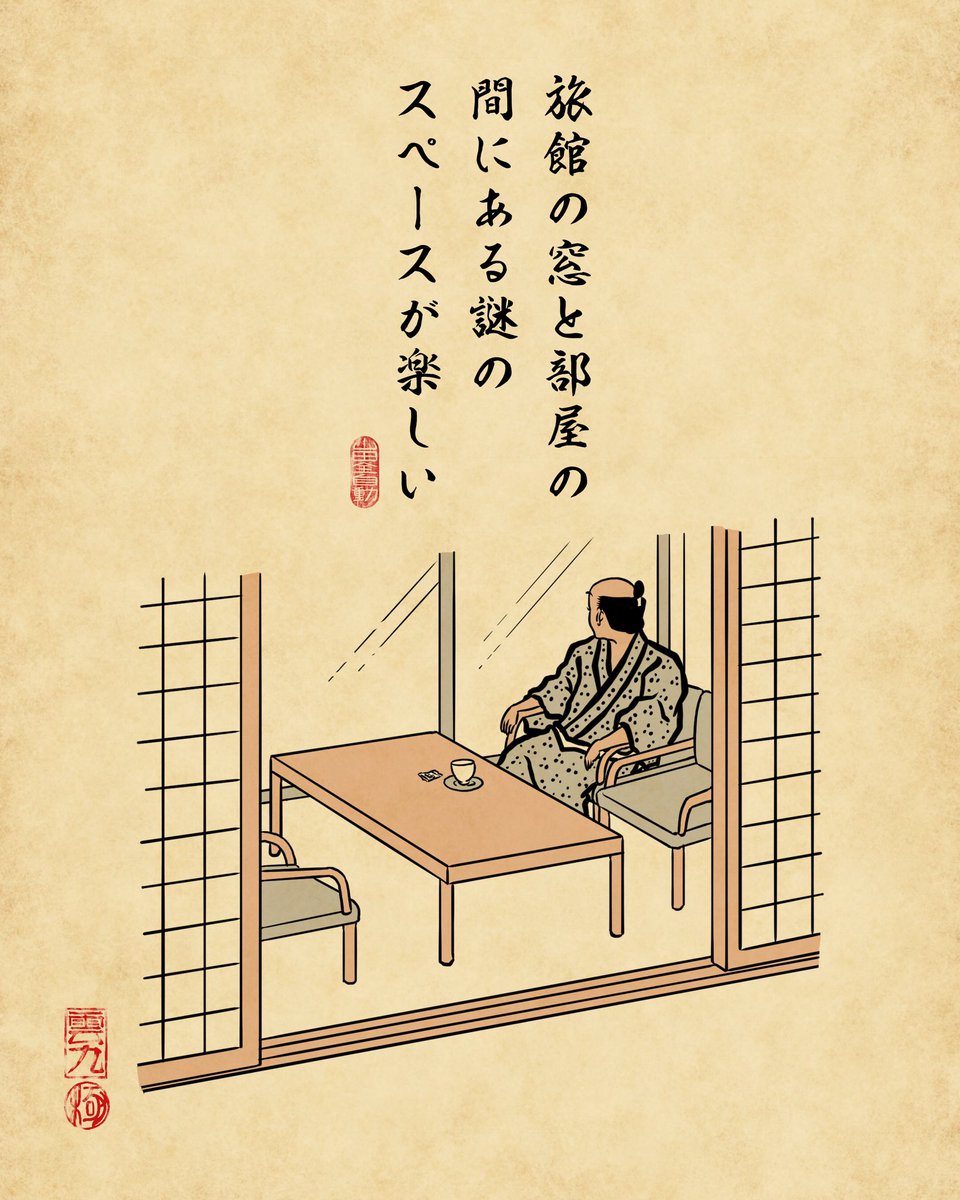 旅館の窓と部屋の
間にある謎の
スペースが楽しい